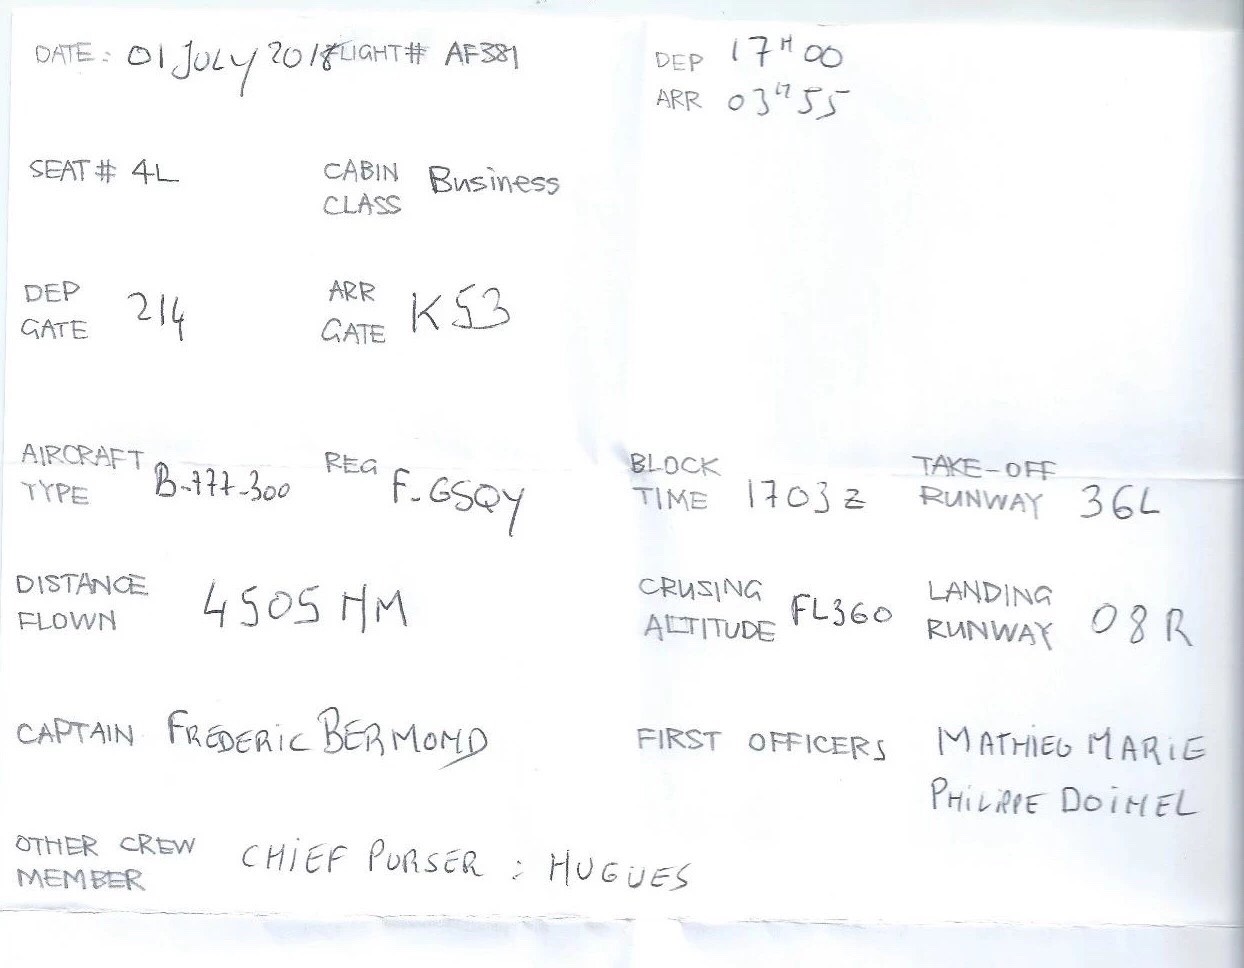 DATE: 01 JULY 2018 FLIGHT# AF381
DEP 17H00
ARR 03H55
SEAT# 4L
CABIN CLASS Business
DEP GATE 214
ARR GATE K53
AIRCRAFT TYPE B-777-300
REG F-GSQY
BLOCK TIME 1703Z
TAKE-OFF RUNWAY 36L
DISTANCE FLOWN 4505 NM
CRUSING ALTITUDE FL360
LANDING RUNWAY 08R
CAPTAIN FREDERIC BERMOND
FIRST OFFICERS MATHIEU MARIE
PHILIPPE DOINEL
OTHER CREW MEMBER CHIEF PURSER : HUGUES